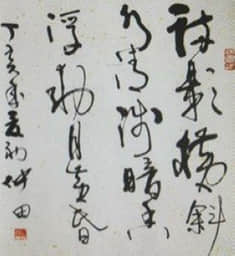 疏影橫斜
水清浅暗香
浮動月黄昏
丁亥年夏初